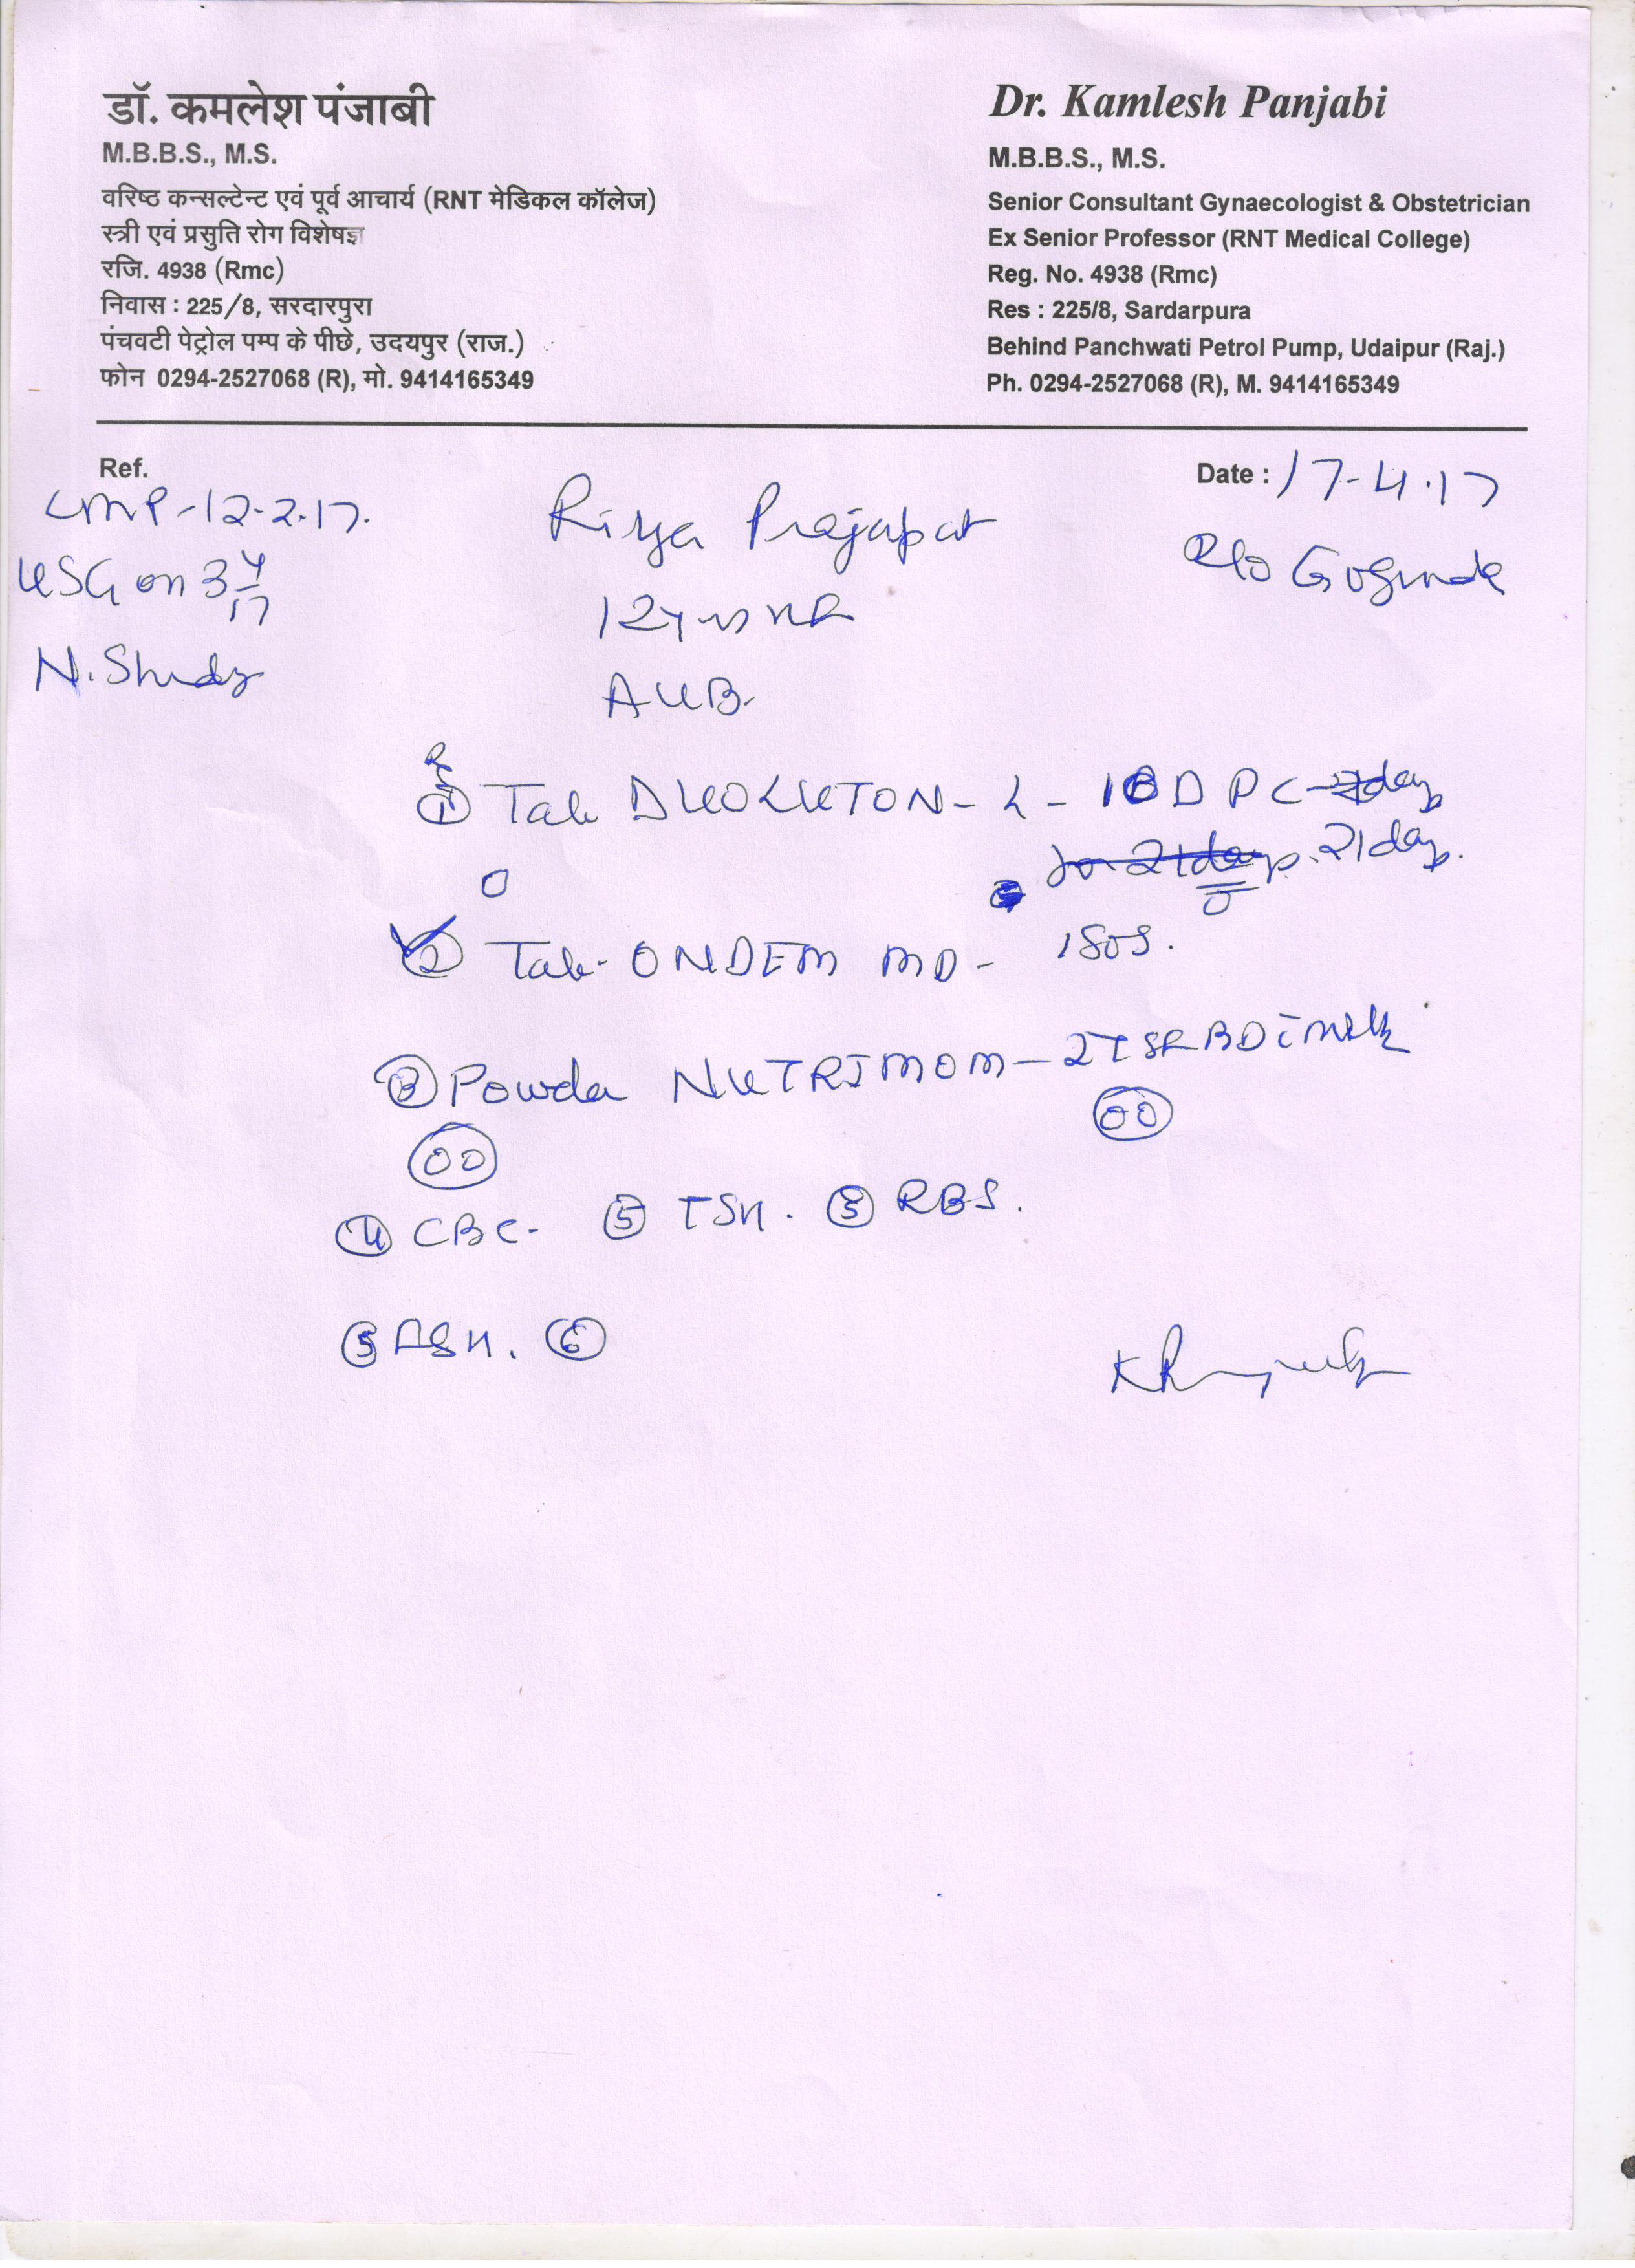 डॉ. कमलेश पंजाबी
M.B.B.S., M.S.
वरिष्ठ कन्सल्टेन्ट एवं पूर्व आचार्य (RNT मेडिकल कॉलेज)
स्त्री एवं प्रसुति रोग विशेषज्ञ
रजि. 4938 (Rmc)
निवास : 225/8, सरदारपुरा
पंचवटी पेट्रोल पम्प के पीछे, उदयपुर (राज.)
फोन 0294-2527068 (R), मो. 9414165349
Dr. Kamlesh Panjabi
M.B.B.S., M.S.
Senior Consultant Gynaecologist & Obstetrician
Ex Senior Professor (RNT Medical College)
Reg. No. 4938 (Rmc)
Res : 225/8, Sardarpura
Behind Panchwati Petrol Pump, Udaipur (Raj.)
Ph. 0294-2527068 (R), M. 9414165349
Ref.
Date : 17-4-17
LMP-12-2-17.
Riya Prajapat
R/o Gogunda
USG on 3 4/17
12y
N. Study
AUB.
① Tab DUOLUTON-L - 1BD PC
21 days.
② Tab. ONDEM MD - 1 SOS.
③ Powder NUTRIMOM - 2TSF BD c milk
④ CBC- ⑤ TSH. RBS.
⑤ FSH. ⑥